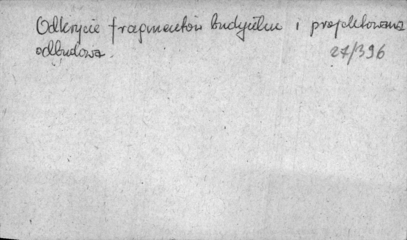 Odkrycie fragmentów budynku i projektowana
odbudowa. 27/396